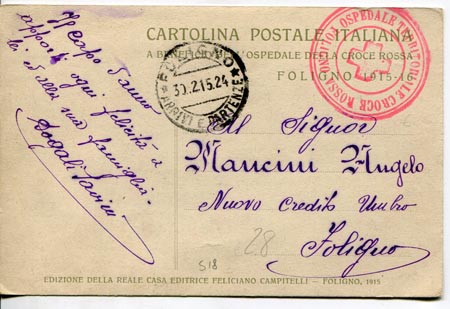 CARTOLINA POSTALE ITALIANA
A BENEFICIO DELL'OSPEDALE DELLA CROCE ROSSA
FOLIGNO 1915-16
OSPEDALE TERRITORIALE CROCE ROSSA
FOLIGNO
30.2.15.24
ARRIVI E PARTENZE
Il capo d'anno
apporti ogni felicità a
lei e alla sua famiglia.
Al Signor
Mancini Angelo
Nuovo Credito Umbro
Foligno
28
518
EDIZIONE DELLA REALE CASA EDITRICE FELICIANO CAMPITELLI — FOLIGNO, 1915